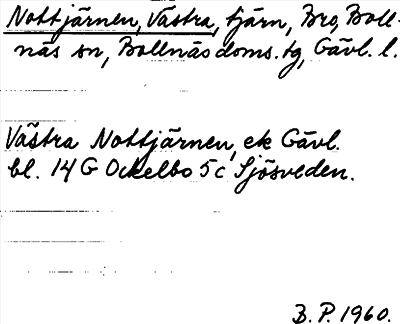 Nottjärnen, Västra, tjärn, Bro, Boll-
näs sn, Bollnäs doms. tg, Gävl. l.
Västra Nottjärnen, ek Gävl.
bl. 14 G Ockelbo 5 c Sjösveden.
B. P. 1960.